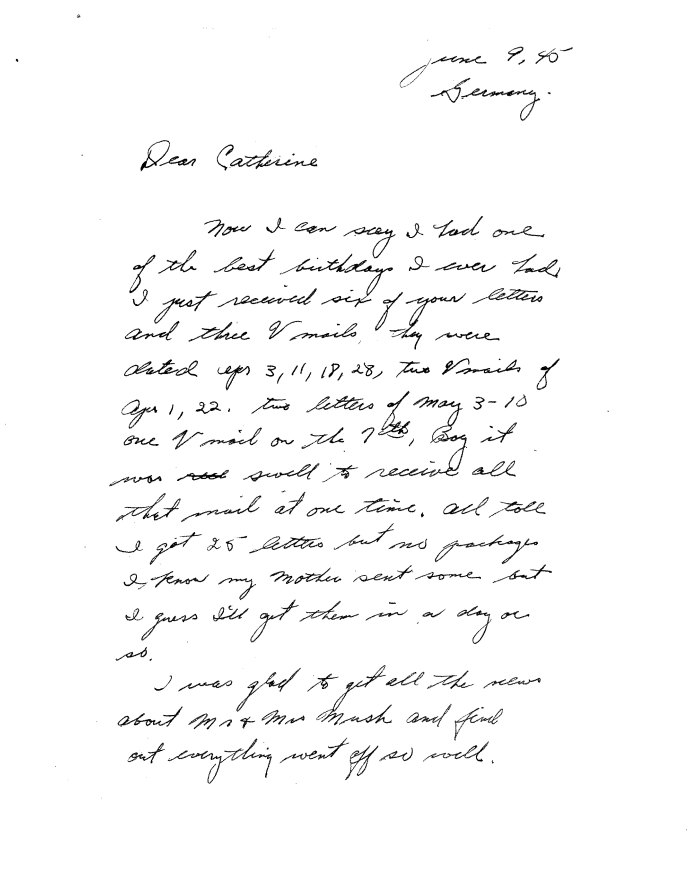 June 9, 45
Germany.
Dear Catherine
Now I can say I had one
of the best birthdays I ever had,
I just received six of your letters
and three V mails, they were
dated apr 3, 11, 18, 28, two Vmails of
Apr 1, 22. two letters of May 3-10
one V mail on the 7th, Boy it
was swell to receive all
that mail at one time. all toll
I got 25 letters but no packages
I know my Mother sent some but
I guess I'll get them in a day or
so.
I was glad to get all the news
about Mr & Mrs Mush and find
out everything went off so well.